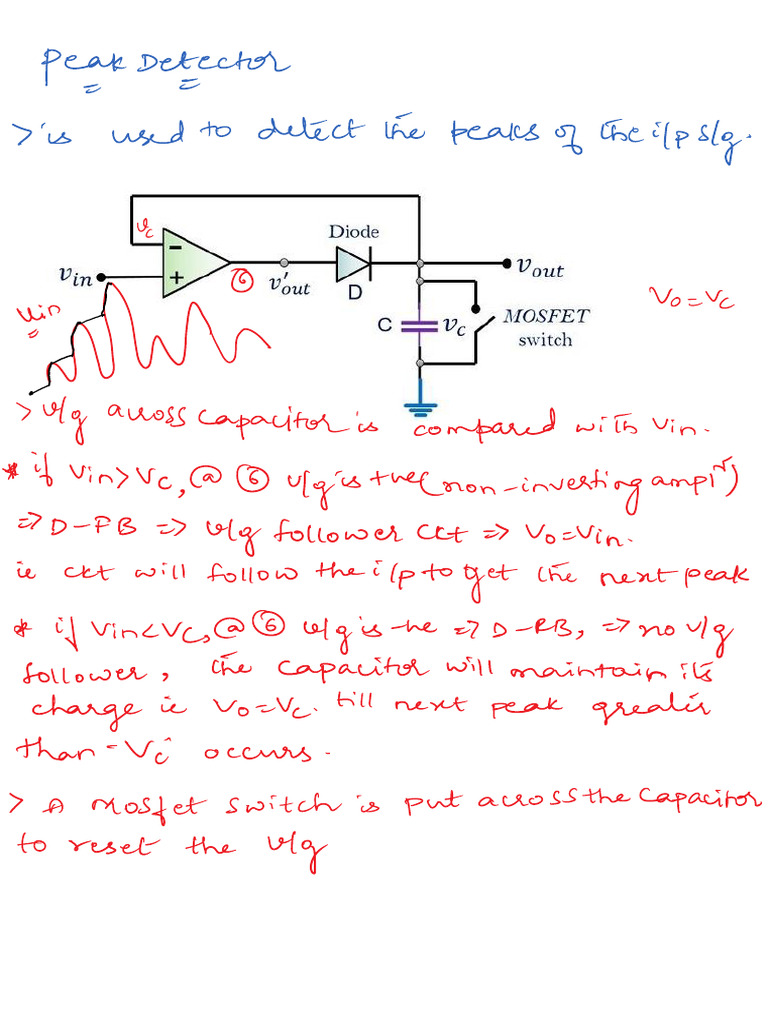 Peak Detector
> is used to detect the peaks of the i/p s/g.
vc
Diode
vin
v'out
vout
6
D
Vin
Vo = Vc
C
vc
MOSFET
switch
> v/g across capacitor is compared with Vin.
* if Vin > Vc, @ 6 v/g is +ve (non-inverting ampl^r)
=> D-FB => v/g follower ckt => Vo = Vin.
ie ckt will follow the i/p to get the next peak
* if Vin < Vc, @ 6 v/g is -ve => D-RB, => no v/g
follower, the capacitor will maintain its
charge ie Vo = Vc. till next peak greater
than - Vc occurs.
> A Mosfet switch is put across the capacitor
to reset the v/g